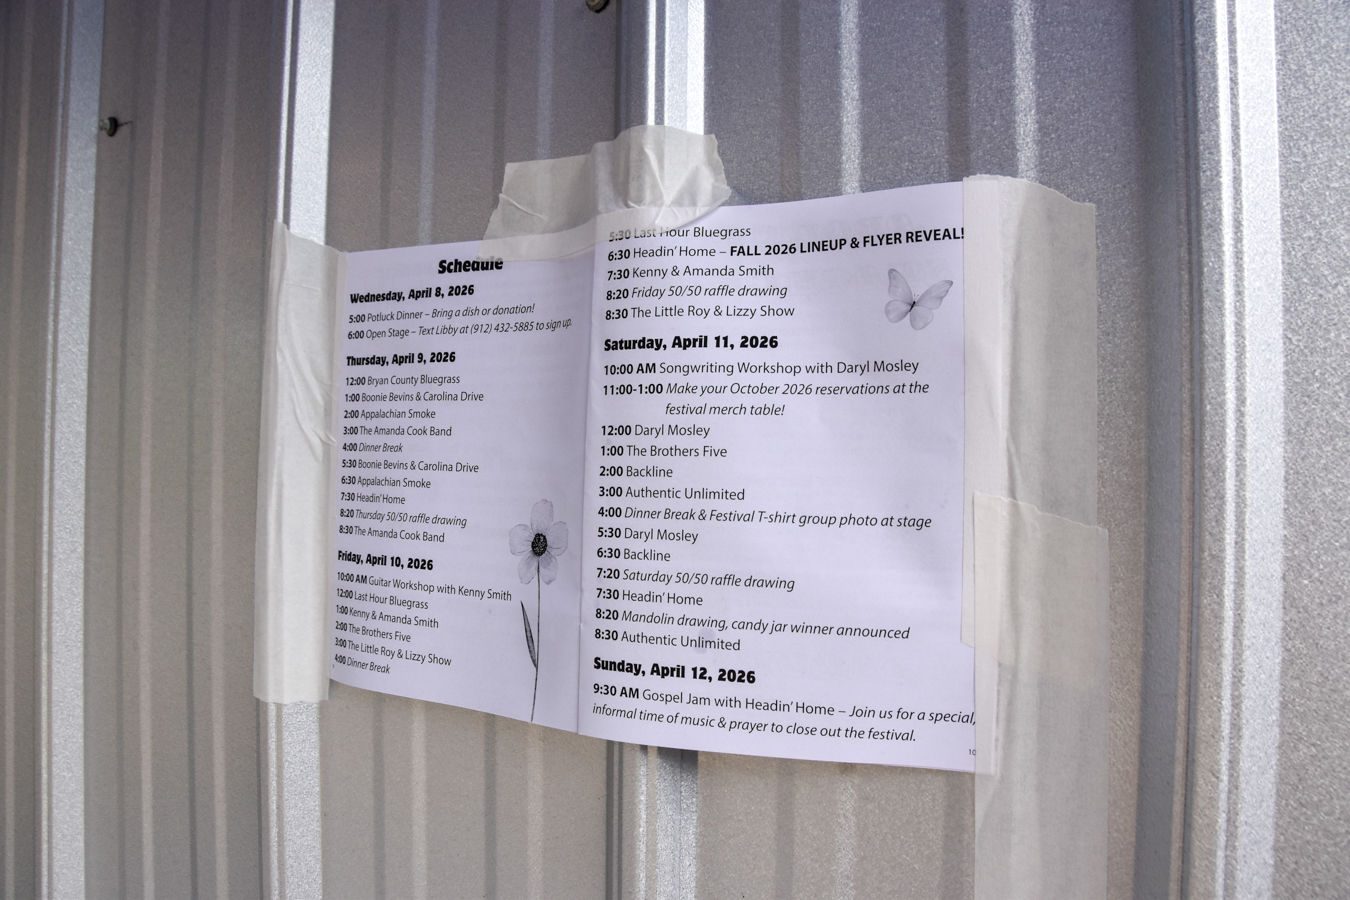 Schedule
Wednesday, April 8, 2026
5:00 Potluck Dinner – Bring a dish or donation!
6:00 Open Stage – Text Libby at (912) 432-5885 to sign up.
Thursday, April 9, 2026
12:00 Bryan County Bluegrass
1:00 Boonie Bevins & Carolina Drive
2:00 Appalachian Smoke
3:00 The Amanda Cook Band
4:00 Dinner Break
5:30 Boonie Bevins & Carolina Drive
6:30 Appalachian Smoke
7:30 Headin' Home
8:20 Thursday 50/50 raffle drawing
8:30 The Amanda Cook Band
Friday, April 10, 2026
10:00 AM Guitar Workshop with Kenny Smith
12:00 Last Hour Bluegrass
1:00 Kenny & Amanda Smith
2:00 The Brothers Five
3:00 The Little Roy & Lizzy Show
4:00 Dinner Break
5:30 Last Hour Bluegrass
6:30 Headin' Home – FALL 2026 LINEUP & FLYER REVEAL!
7:30 Kenny & Amanda Smith
8:20 Friday 50/50 raffle drawing
8:30 The Little Roy & Lizzy Show
Saturday, April 11, 2026
10:00 AM Songwriting Workshop with Daryl Mosley
11:00-1:00 Make your October 2026 reservations at the
festival merch table!
12:00 Daryl Mosley
1:00 The Brothers Five
2:00 Backline
3:00 Authentic Unlimited
4:00 Dinner Break & Festival T-shirt group photo at stage
5:30 Daryl Mosley
6:30 Backline
7:20 Saturday 50/50 raffle drawing
7:30 Headin' Home
8:20 Mandolin drawing, candy jar winner announced
8:30 Authentic Unlimited
Sunday, April 12, 2026
9:30 AM Gospel Jam with Headin' Home – Join us for a special,
informal time of music & prayer to close out the festival.